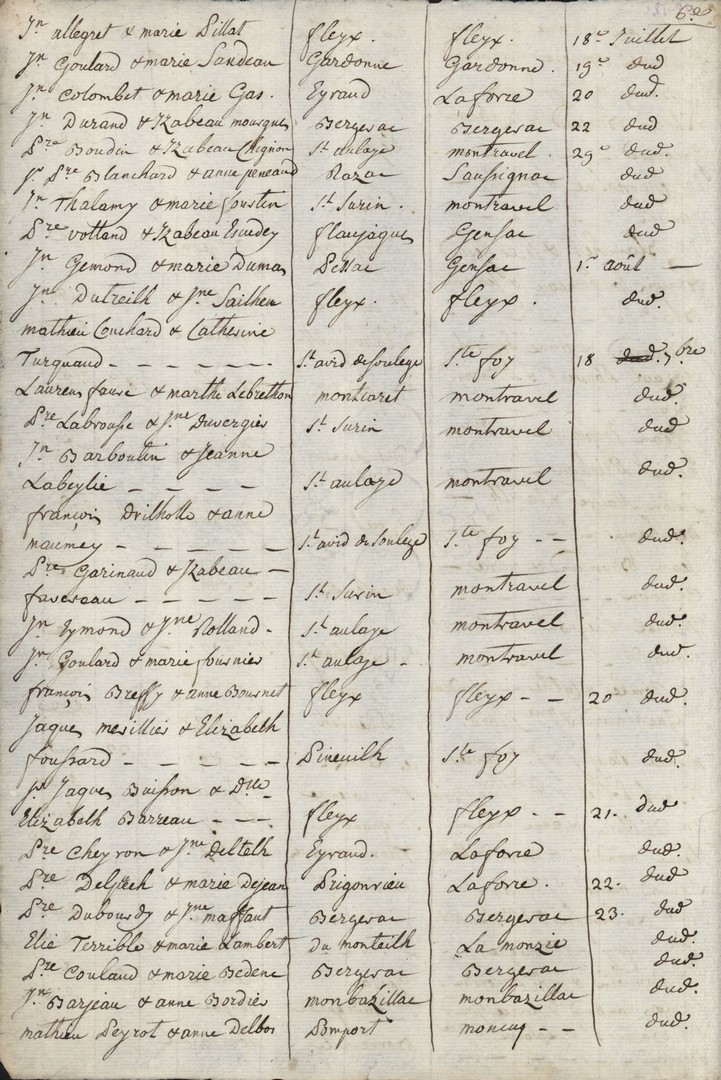 6e
Jn allegret & marie Pillat fleyx. fleyx. 18e Juillet
Jn Goulard & marie Sandeau Gardonne Gardonne. 19e dud
Jn Colombet & marie Gas. Eyraud Laforce 20 dud.
Jn Durand & Izabeau mousques Bergerac Bergerac 22 dud
Pre Boudin & Izabeau Chignon St aulaye montravel. 29e dud.
Jn Pre Blanchard & anne peneaud Razac Saussignac dud
Jn Thalamy & marie foustin St Surin. montravel dud
Pre Volland & Izabeau Escudey flaujaques Gensac dud
Jn Gemond & marie Dumas Pessac Gensac 1r août —
Jn Dutreilh & Jne Sailheu fleyx. fleyx. dud.
mathieu Couchard & Catherine
Turquaud - - - - - - St avid de Soulege Ste foy 18 dud. 7bre
Laurens faure & marthe Lebrethon montcaret montravel dud.
Pre Labrousse & Jne Duvergies St Surin montravel dud
Jn Barboulin & Jeanne
Labeylie - - - - St aulaye montravel dud.
françois Drilholle & anne
maumey - - - - - St avid de Soulege Ste foy - - dud.
Pre Garinaud & Izabeau -
favereau - - - - - St Surin montravel dud.
Jn Eymond & Jne Rolland - St aulaye montravel dud.
Jn Goulard & marie fournier St aulaye - montravel dud.
françois Bressy & anne Bournet fleyx fleyx - - 20 dud.
Jaques mesillies & Elizabeth
foussard - - - - - Pineuilh Ste foy dud.
Jn Jaques Buisson & Dlle
Elizabeth Barreau - - - fleyx fleyx - - 21. dud
Pre Cheyron & Jne Delteth Eyraud. - Laforce dud.
Pre & marie Dejean Prigonrieu Laforce. 22. dud
Pre Dubourdy & Jne maffaut Bergerac Bergerac 23. dud
Elie Terrible & marie Lambert du monteilh La monzie dud.
Pre Couland & marie Bedene Bergerac Bergerac dud.
Jne Barjeau & anne Bordies monbazillac monbazillac dud.
mathieu Peyrot & anne Delbos Pomport moncuq - - dud.